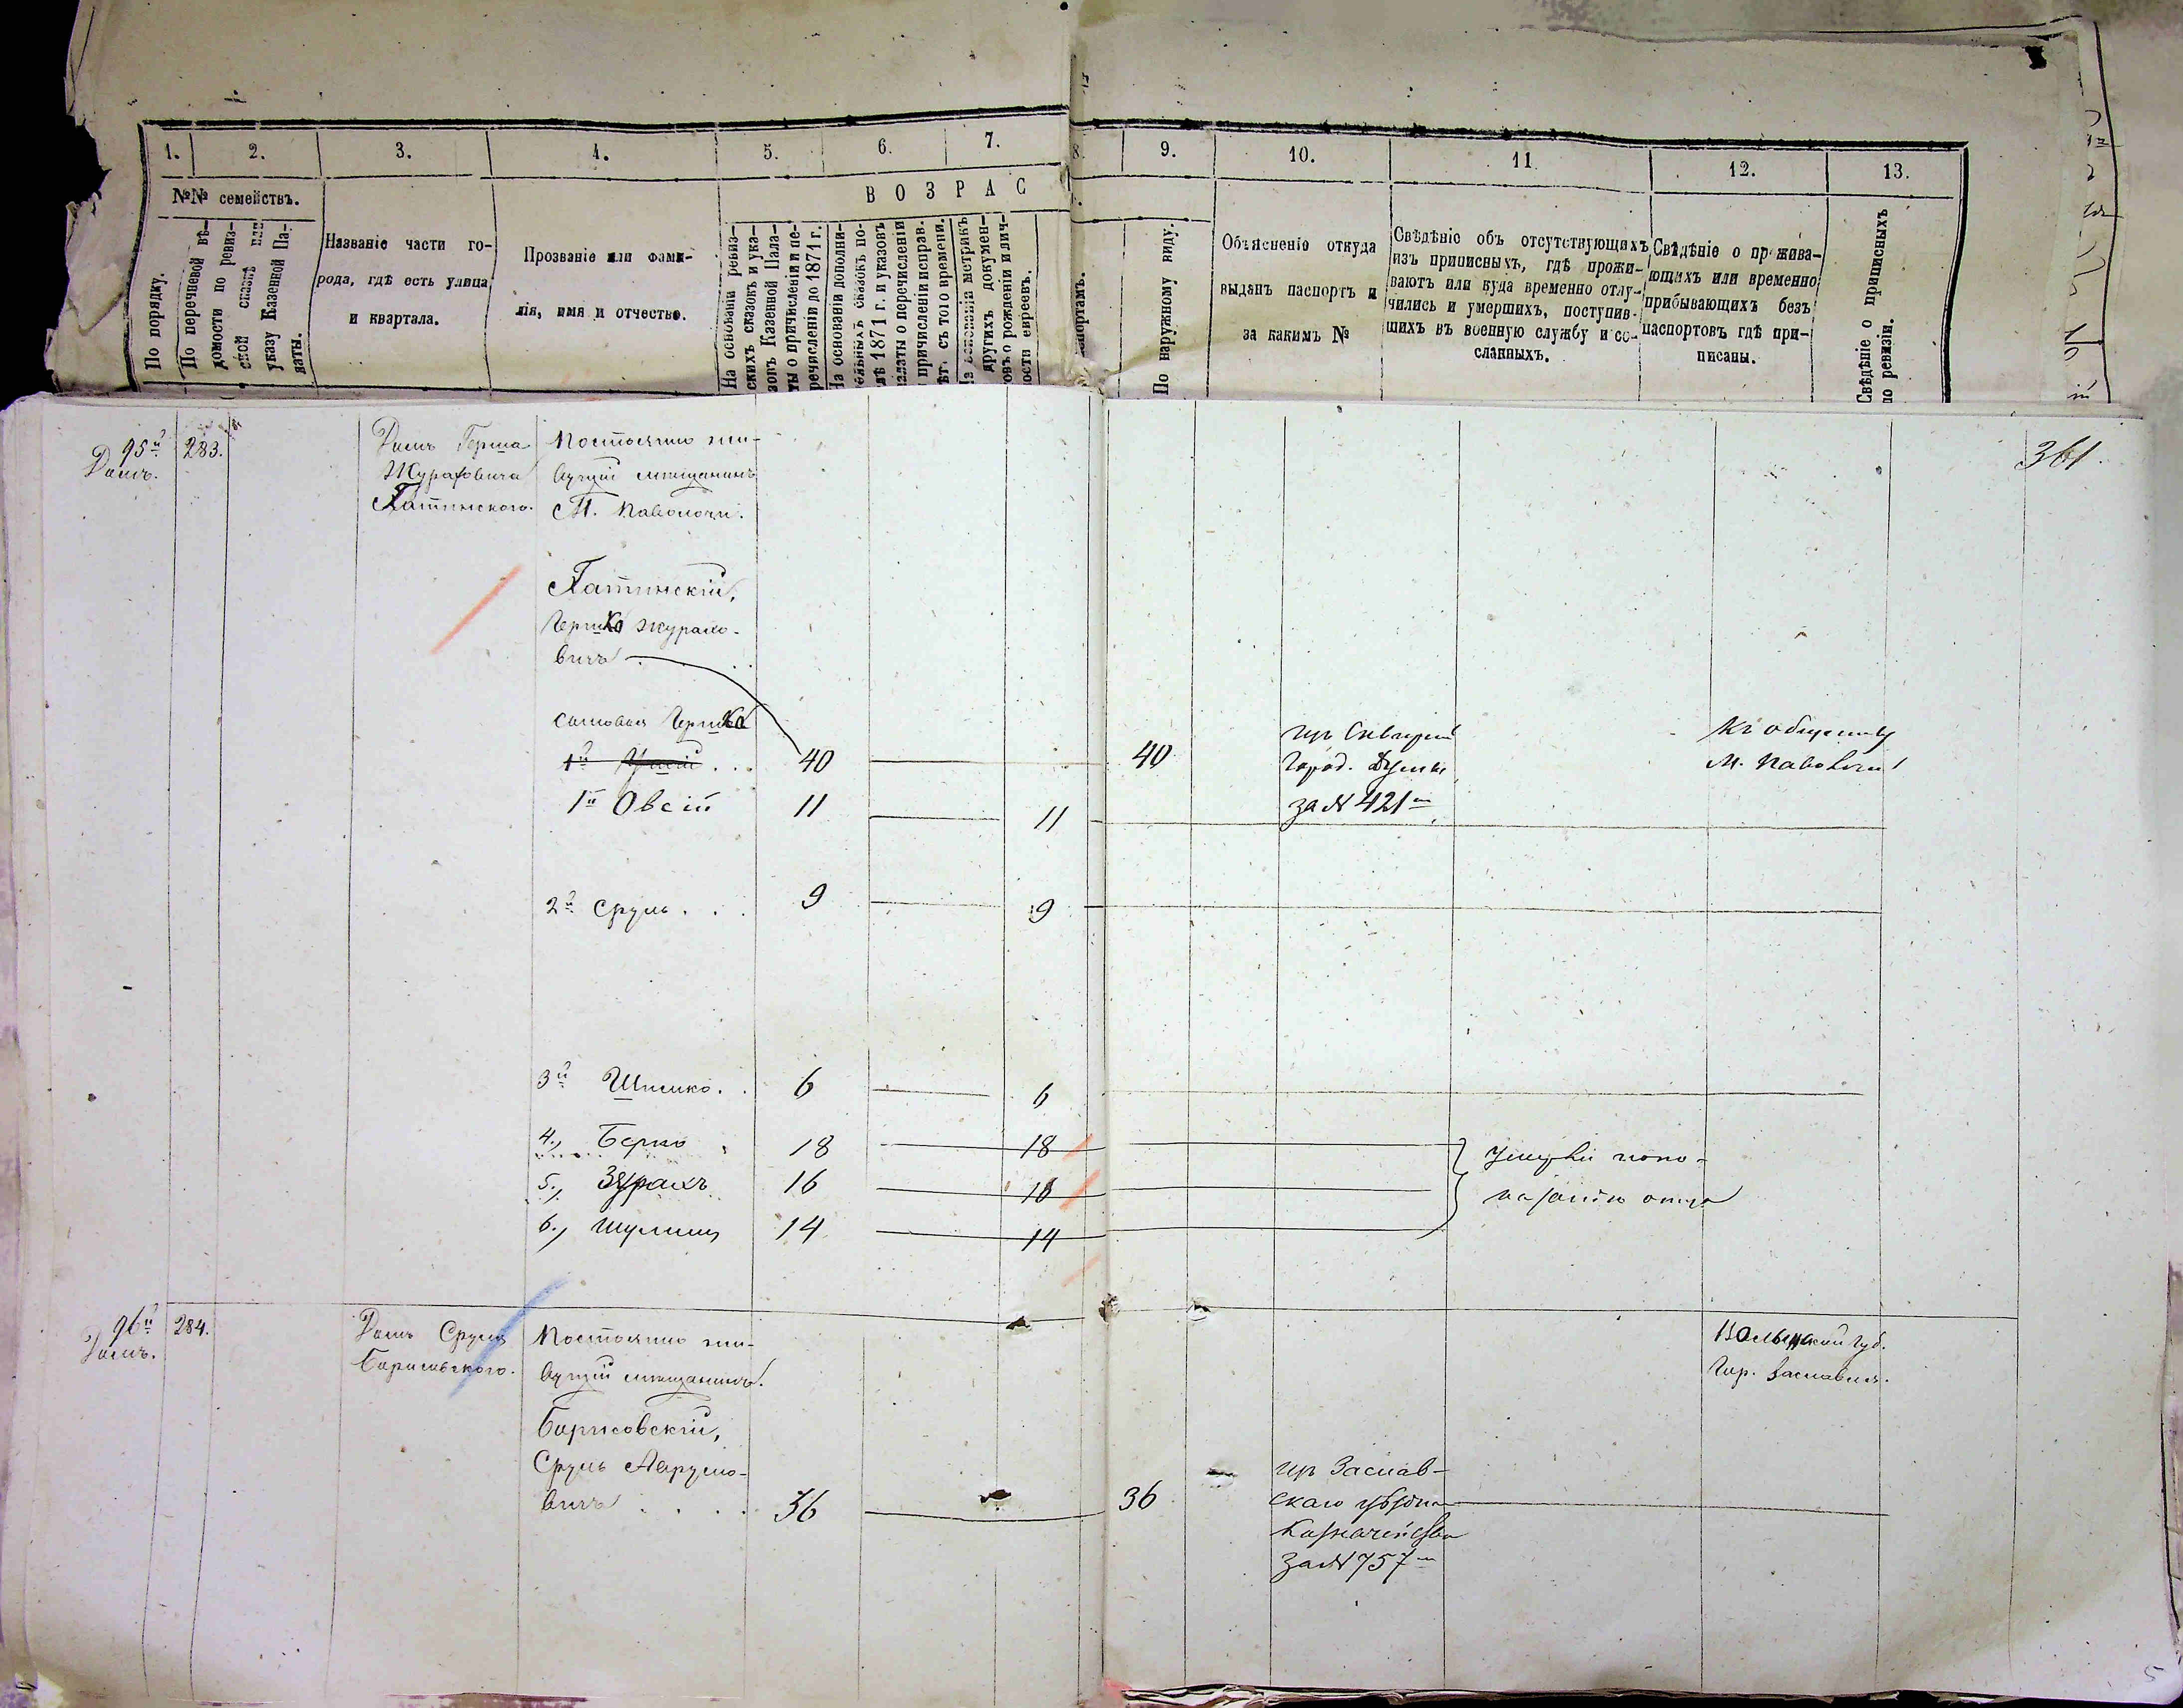 1.
2.
3.
4.
5.
6.
7.
8.
9.
10.
11
12.
13.
№№ семействъ.
ВОЗРАС
По порядку.
По перечневой вѣ-
домости по ревиз-
ской сказкѣ или
указу Казенной Па-
латы.
Названіе части го-
рода, гдѣ есть улица
и квартала.
Прозваніе или фами-
лія, имя и отчество.
На основаніи ревиз-
скихъ сказокъ и ука-
зовъ Казенной Пала-
ты о причисленіи и пе-
речисленіи до 1871 г.
На основаніи дополни-
ельныхъ сказокъ по-
лѣ 1871 г. и указовъ
алаты о перечисленіи
причисленіи исправ.
ѣт. съ того времени.
а основаніи метрикъ
другихъ докумен-
овъ о рожденіи и лич-
ности евреевъ.
аспортамъ.
По наружному виду.
Объясненіе откуда
выданъ паспортъ и
за какимъ №
Свѣдѣніе объ отсутствующихъ
изъ приписныхъ, гдѣ прожи-
ваютъ или куда временно отлу-
чились и умершихъ, поступив-
шихъ въ военную службу и со-
сланныхъ.
Свѣдѣніе о прожива-
ющихъ или временно
прибывающихъ безъ
паспортовъ гдѣ при-
писаны.
Свѣдѣніе о приписныхъ
по ревизіи.
361.
95й
Домъ.
283.
Домъ Герша
Журафовича
Гатинского.
Постоянно жи-
вущій мещанинъ
М. Паволочи.
Гатинскій,
Гершко Журахо-
вичъ
сыновья Гершка
40
40
1й Овсій
11
11
изъ Сквирской
Город. Думы
за № 421
Къ обществу
М. Паволочи
2й Сруль . .
9
9
3й Шлиомко . .
6
6
4., Берко .
18
18
5., Зурахъ
16
16
6., Шулимъ
14
14
отца
96й
Домъ.
284.
Домъ Сруля
Борисовского.
Постоянно жи-
вущій мещанинъ.
Борисовскій,
Сруль Аврумо-
вичъ . . . .
36
36
изъ Заслав-
скаго уѣздна
Казначейства
за № 757
Волынской губ.
Гор. Заславля.